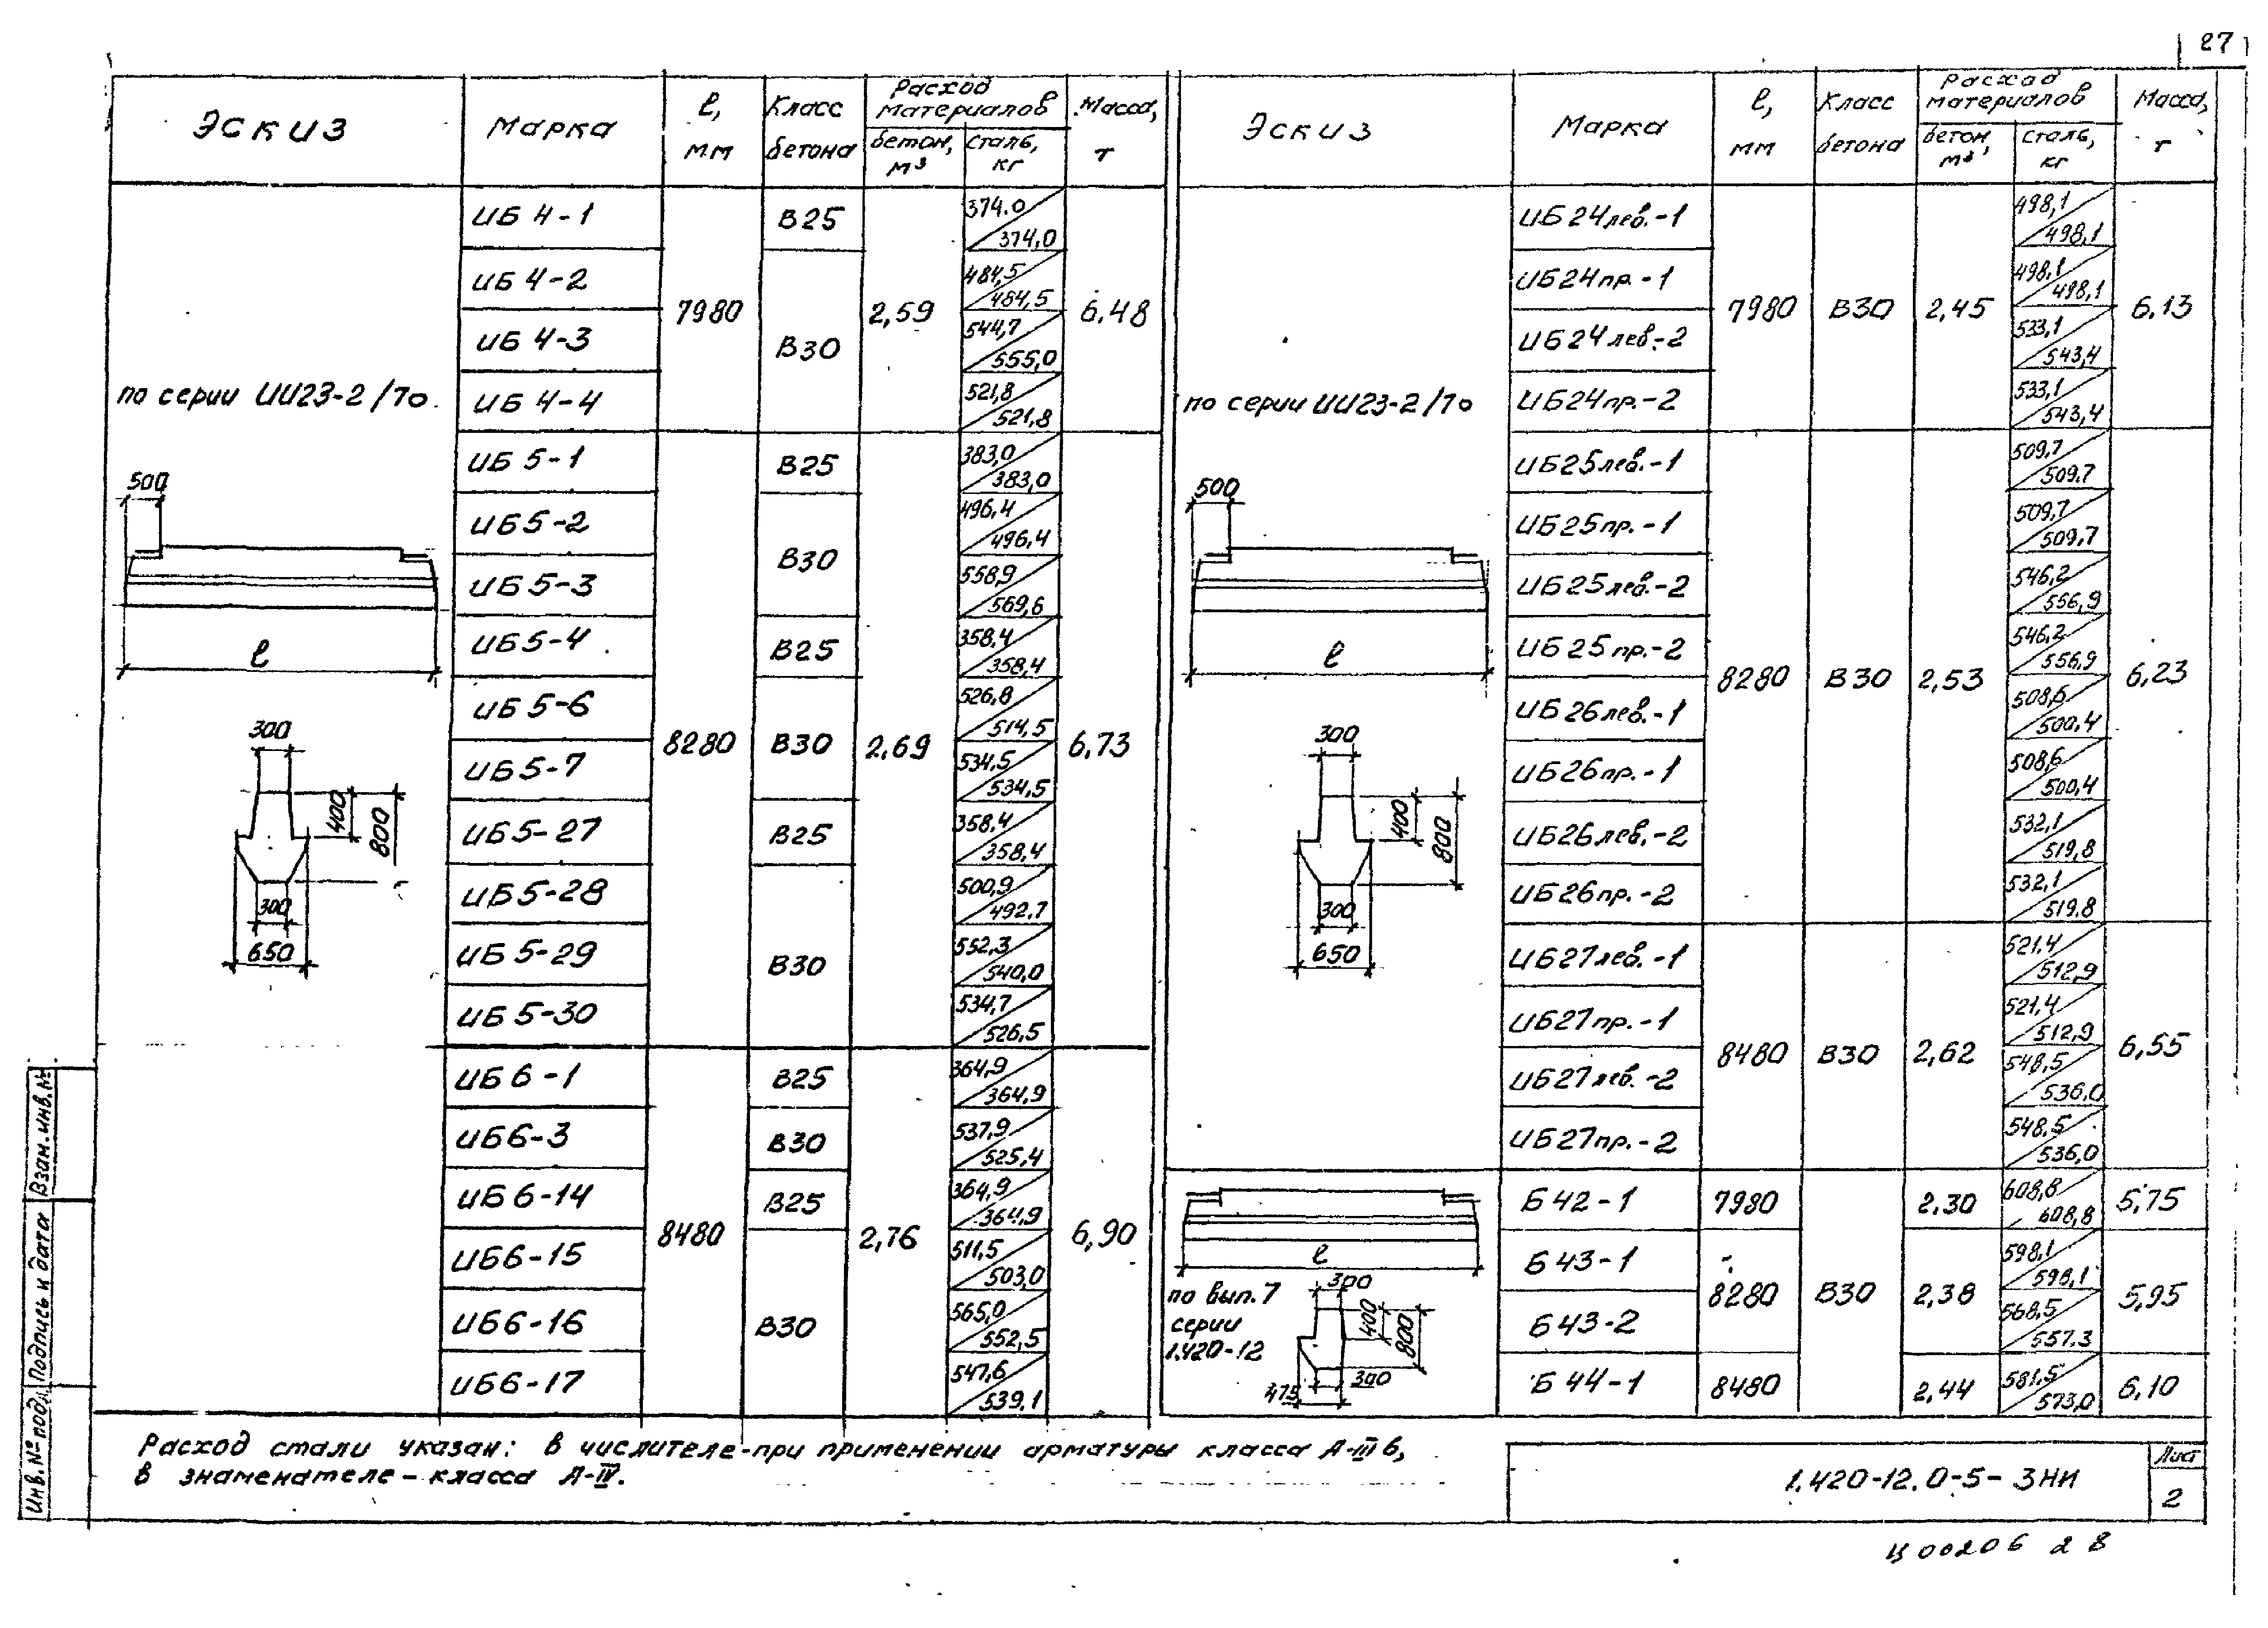 27
Эскиз
Марка
ℓ, мм
Класс бетона
Расход материалов
бетон, м³
сталь, кг
Масса, т
по серии ИИ23-2/70
500
ℓ
300
400
800
300
650
ИБ 4-1 7980 В25 2,59 374.0/374,0 6,48
ИБ 4-2 В30 484,5/484,5
ИБ 4-3 544,7/555,0
ИБ 4-4 521,8/521,8
ИБ 5-1 8280 В25 2,69 383,0/383,0 6,73
ИБ 5-2 В30 496,4/496,4
ИБ 5-3 558,9/569,6
ИБ 5-4 В25 358,4/358,4
ИБ 5-6 В30 526,8/514,5
ИБ 5-7 534,5/534,5
ИБ 5-27 В25 358,4/358,4
ИБ 5-28 В30 500,9/492,7
ИБ 5-29 552,3/540,0
ИБ 5-30 534,7/526,5
ИБ 6-1 8480 В25 2,76 364,9/364,9 6,90
ИБ6-3 В30 537,9/525,4
ИБ 6-14 В25 364,9/364,9
ИБ6-15 В30 511,5/503,0
ИБ6-16 565,0/552,5
ИБ6-17 547,6/539,1
Эскиз
Марка
ℓ, мм
Класс бетона
Расход материалов
бетон, м³
сталь, кг
Масса, т
по серии ИИ23-2/70
500
ℓ
300
400
800
300
650
ИБ24лев.-1 7980 В30 2,45 498,1/498,1 6,13
ИБ24пр.-1 498,1/498,1
ИБ24лев.-2 533,1/543,4
ИБ24пр.-2 533,1/543,4
ИБ25лев.-1 8280 В30 2,53 509,7/509,7 6,23
ИБ25пр.-1 509,7/509,7
ИБ25лев.-2 546,2/556,9
ИБ25пр.-2 546,2/556,9
ИБ26лев.-1 508,6/500,4
ИБ26пр.-1 508,6/500,4
ИБ26лев.-2 532,1/519,8
ИБ26пр.-2 532,1/519,8
ИБ27лев.-1 8480 В30 2,62 521,4/512,9 6,55
ИБ27пр.-1 521,4/512,9
ИБ27лев.-2 548,5/536,0
ИБ27пр.-2 548,5/536,0
ℓ
по вып. 7
серии
1.420-12
300
400
800
300
475
Б 42-1 7980 В30 2,30 608,8/608,8 5,75
Б 43-1 8280 2,38 598,1/598,1 5,95
Б 43-2 568,5/557,3
Б 44-1 8480 2,44 581,5/573,0 6,10
Расход стали указан: в числителе-при применении арматуры класса А-IIIв,
в знаменателе - класса А-IV.
Инв.№ подл. Подпись и дата Взам.инв.№
1.420-12.0-5-3НИ
Лист
2
Ц00206 28